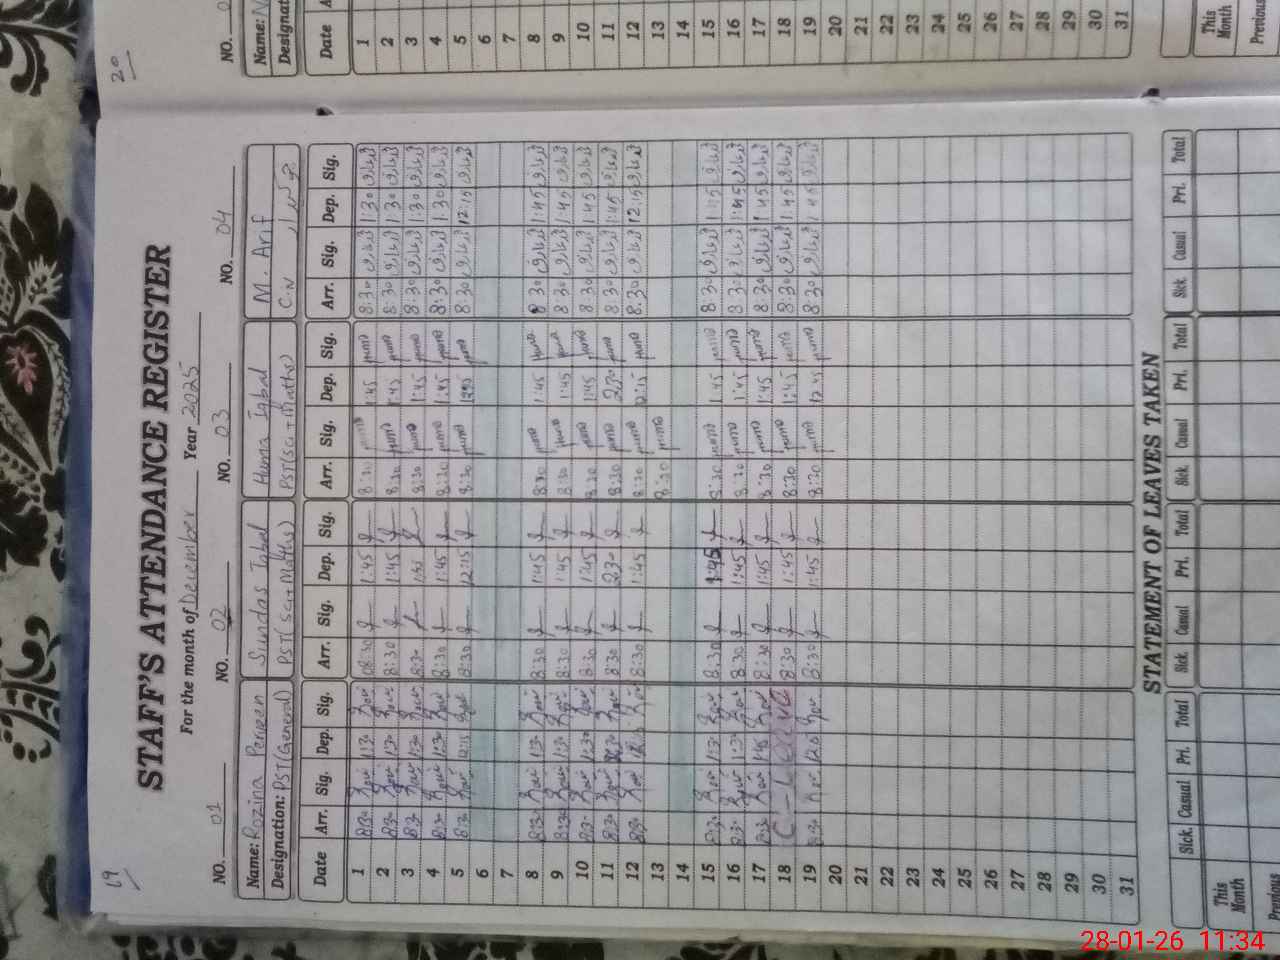 19
STAFF'S ATTENDANCE REGISTER
For the month of December Year 2025
NO. 01 NO. 02 NO. 03 NO. 04
Name: Rozina Perveen Sundas Iqbal Huma Iqbal M. Arif
Designation: PST(General) PST(Sci+Maths) PST(Sci+Maths) C.N
Date Arr. Sig. Dep. Sig. Arr. Sig. Dep. Sig. Arr. Sig. Dep. Sig. Arr. Sig. Dep. Sig.
1 8:30 1:30 08:30 1:45 8:30 1:45 8:30 1:30
2 8:30 1:30 8:30 1:45 8:30 1:45 8:30 1:30
3 8:30 1:30 8:30 1:45 8:30 1:45 8:30 1:30
4 8:30 1:30 8:30 1:45 8:30 1:45 8:30 1:30
5 8:30 12:15 8:30 12:15 8:30 8:30 12:15
6
7
8 8:30 1:30 8:30 1:45 8:30 1:45 8:30 1:45
9 8:30 1:30 8:30 1:45 8:30 1:45 8:30 1:45
10 8:30 1:30 8:30 1:45 8:30 1:45 8:30 1:45
11 8:30 8:30 2:30 8:30 2:30 8:30 1:45
12 8:30 8:30 1:45 8:30 12:15 8:30 12:15
13 8:30
14
15 8:30 1:30 8:30 1:45 8:30 1:45 8:30 1:45
16 8:30 1:30 8:30 1:45 8:30 1:45 8:30 1:45
17 8:30 1:45 8:30 1:45 8:30 1:45 8:30 1:45
18 C-Leave 8:30 1:45 8:30 1:45 8:30 1:45
19 8:30 8:30 1:45 8:30 12:45 8:30 1:45
20
21
22
23
24
25
26
27
28
29
30
31
STATEMENT OF LEAVES TAKEN
Sick Casual Pri. Total Sick Casual Pri. Total Sick Casual Pri. Total Sick Casual Pri. Total
This Month
Previous
20
NO.
Name:
Date
1
2
3
4
5
6
7
8
9
10
11
12
13
14
15
16
17
18
19
20
21
22
23
24
25
26
27
28
29
30
31
This Month
Previous
28-01-26 11:34